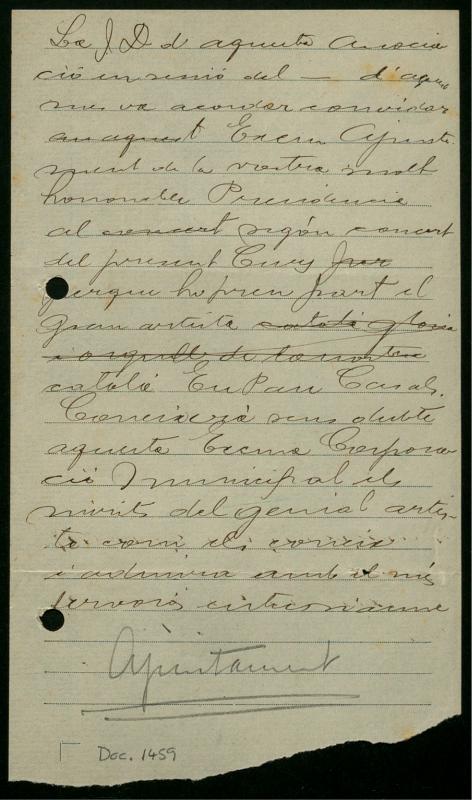 La J. D. d'aquesta Associa
ció en sessió del — d'aquest
mes va acordar convidar
an aquest Excm Ajunta-
ment de la vostra molt
honorable Presidencia
al concert segón concert
del present Curs per
perque hi pren part el
gran artista català gloria
i orgull de la nostra
català En Pau Casals.
Coneixerà sens dubte
aquesta Excma Corpora
ció Municipal els
mèrits del genial artis-
ta com els coneix
i admira amb el més
fervorós entusiasme
Ajuntament
Doc. 1459